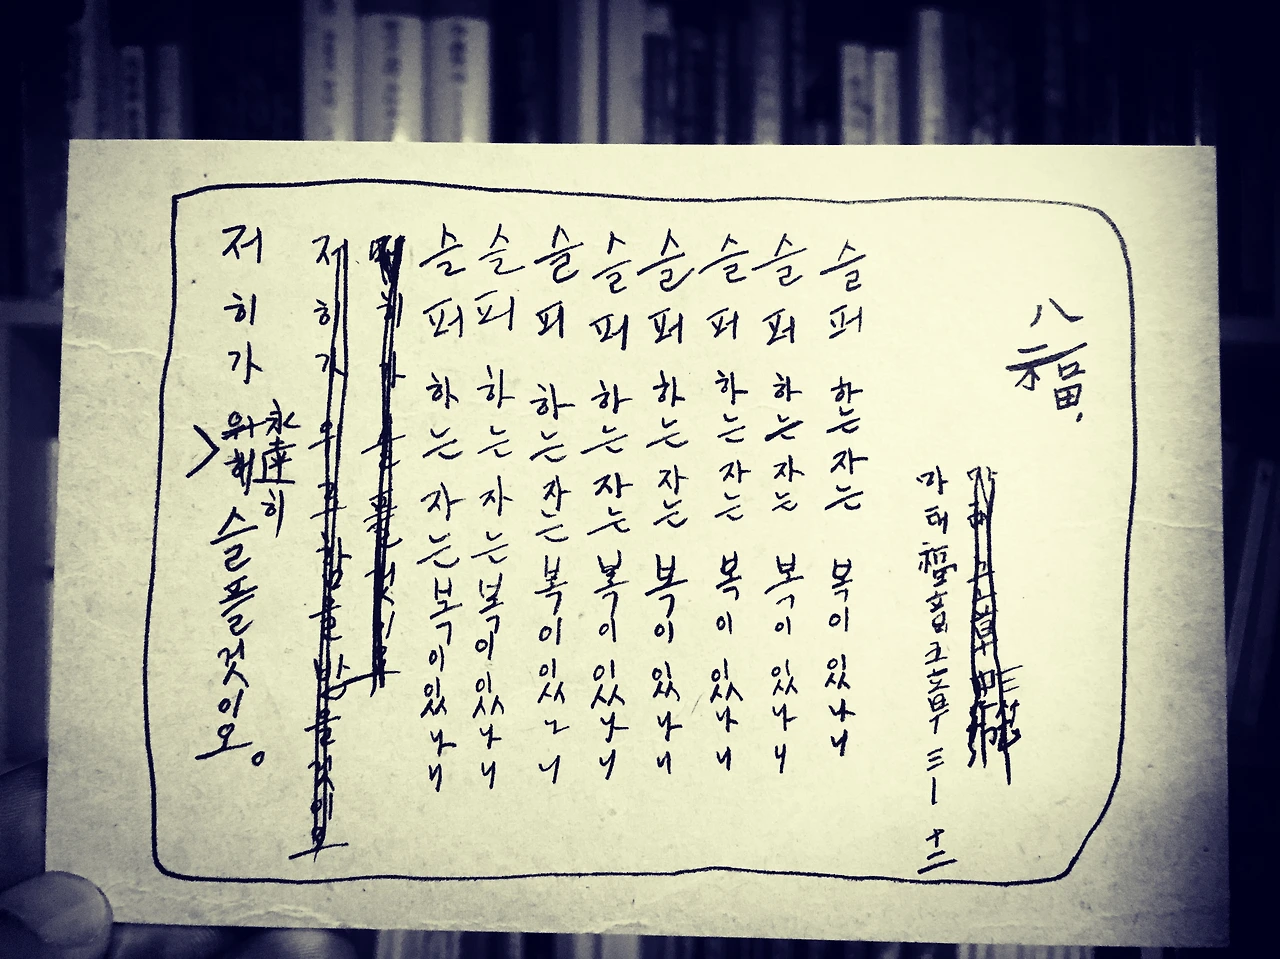 八福
마태福音五章三 — 十二
슬퍼하는자는 복이있나니
슬퍼하는자는 복이있나니
슬퍼하는자는 복이있나니
슬퍼하는자는 복이있나니
슬퍼하는자는 복이있나니
슬퍼하는자는 복이있나니
슬퍼하는자는 복이있나니
슬퍼하는자는 복이있나니
저히가 슬플것이오
저히가 위로함을받을것이오
저히가 위해 永遠히 슬플것이오。